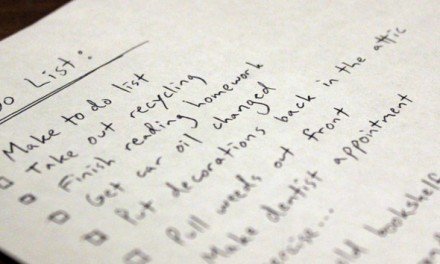 o List:
Make to do list
Take out recycling
Finish reading homework
Get car oil changed
Put decorations back in the attic
Pull weeds out front
Make dentist appointment
bookshelf